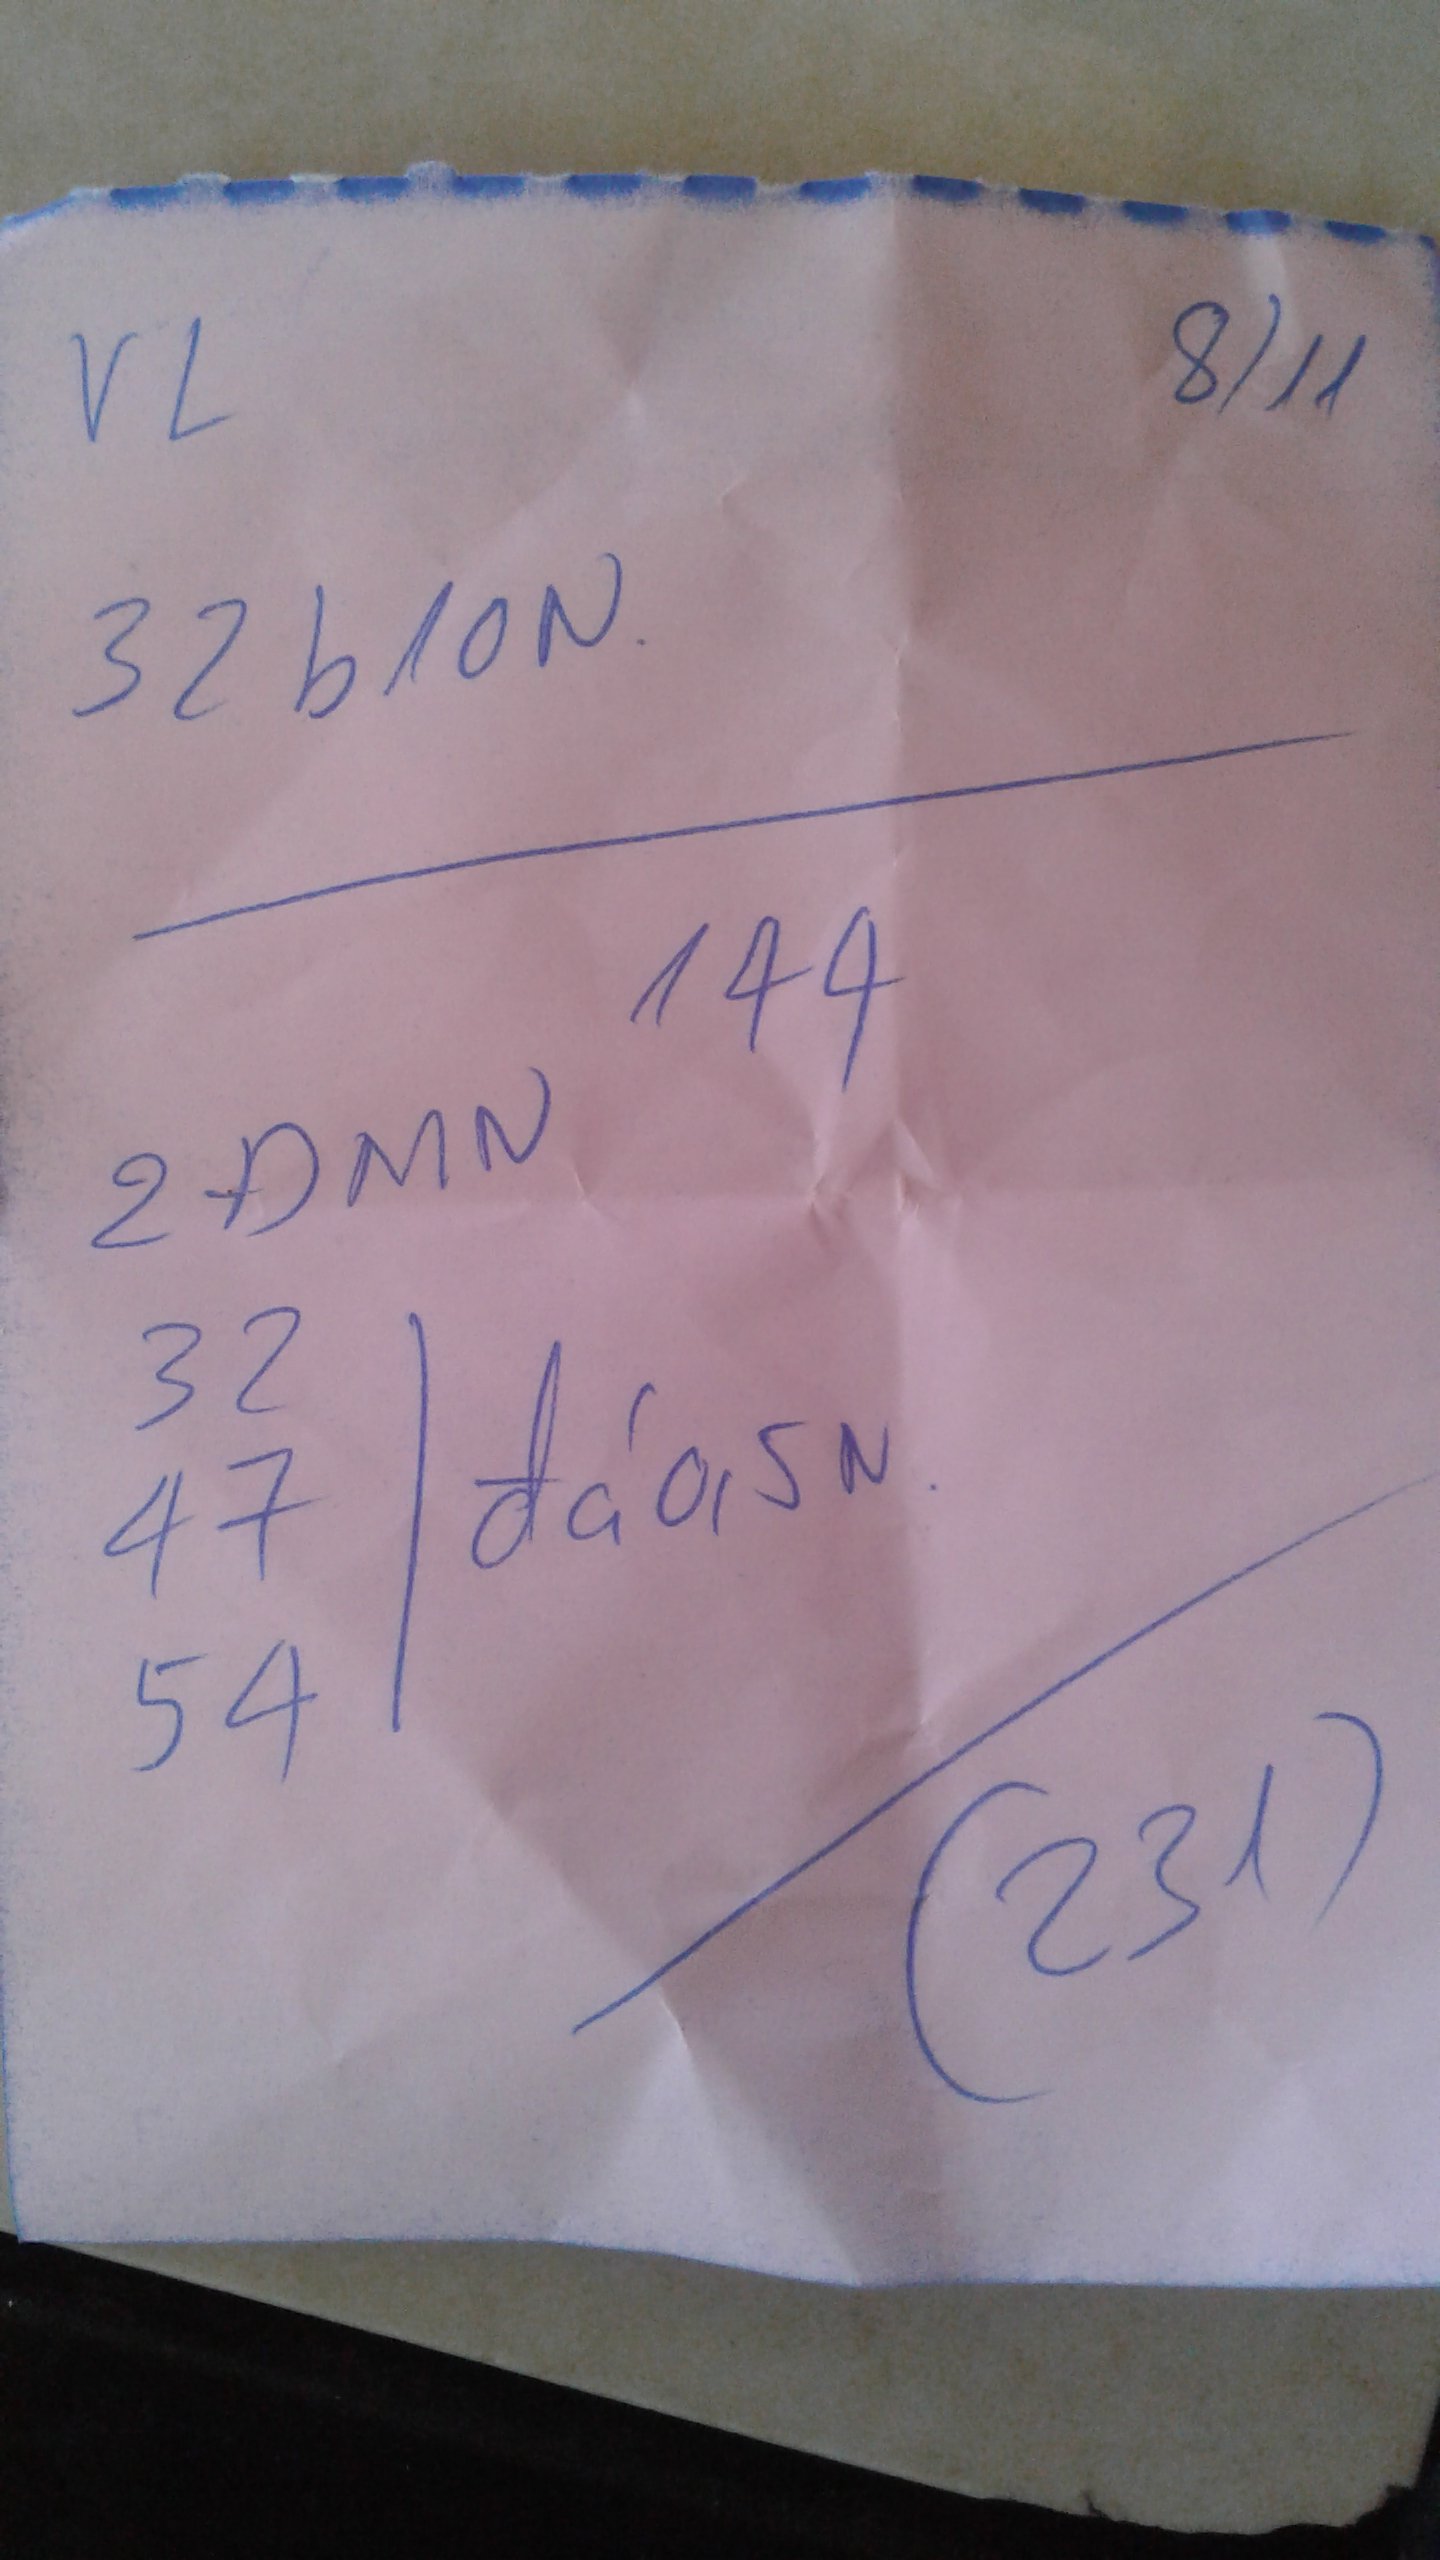 VL 8/11
32 b 10 N.
144
2 Đ MN
32
47 đá 0,5 N.
54
(231)